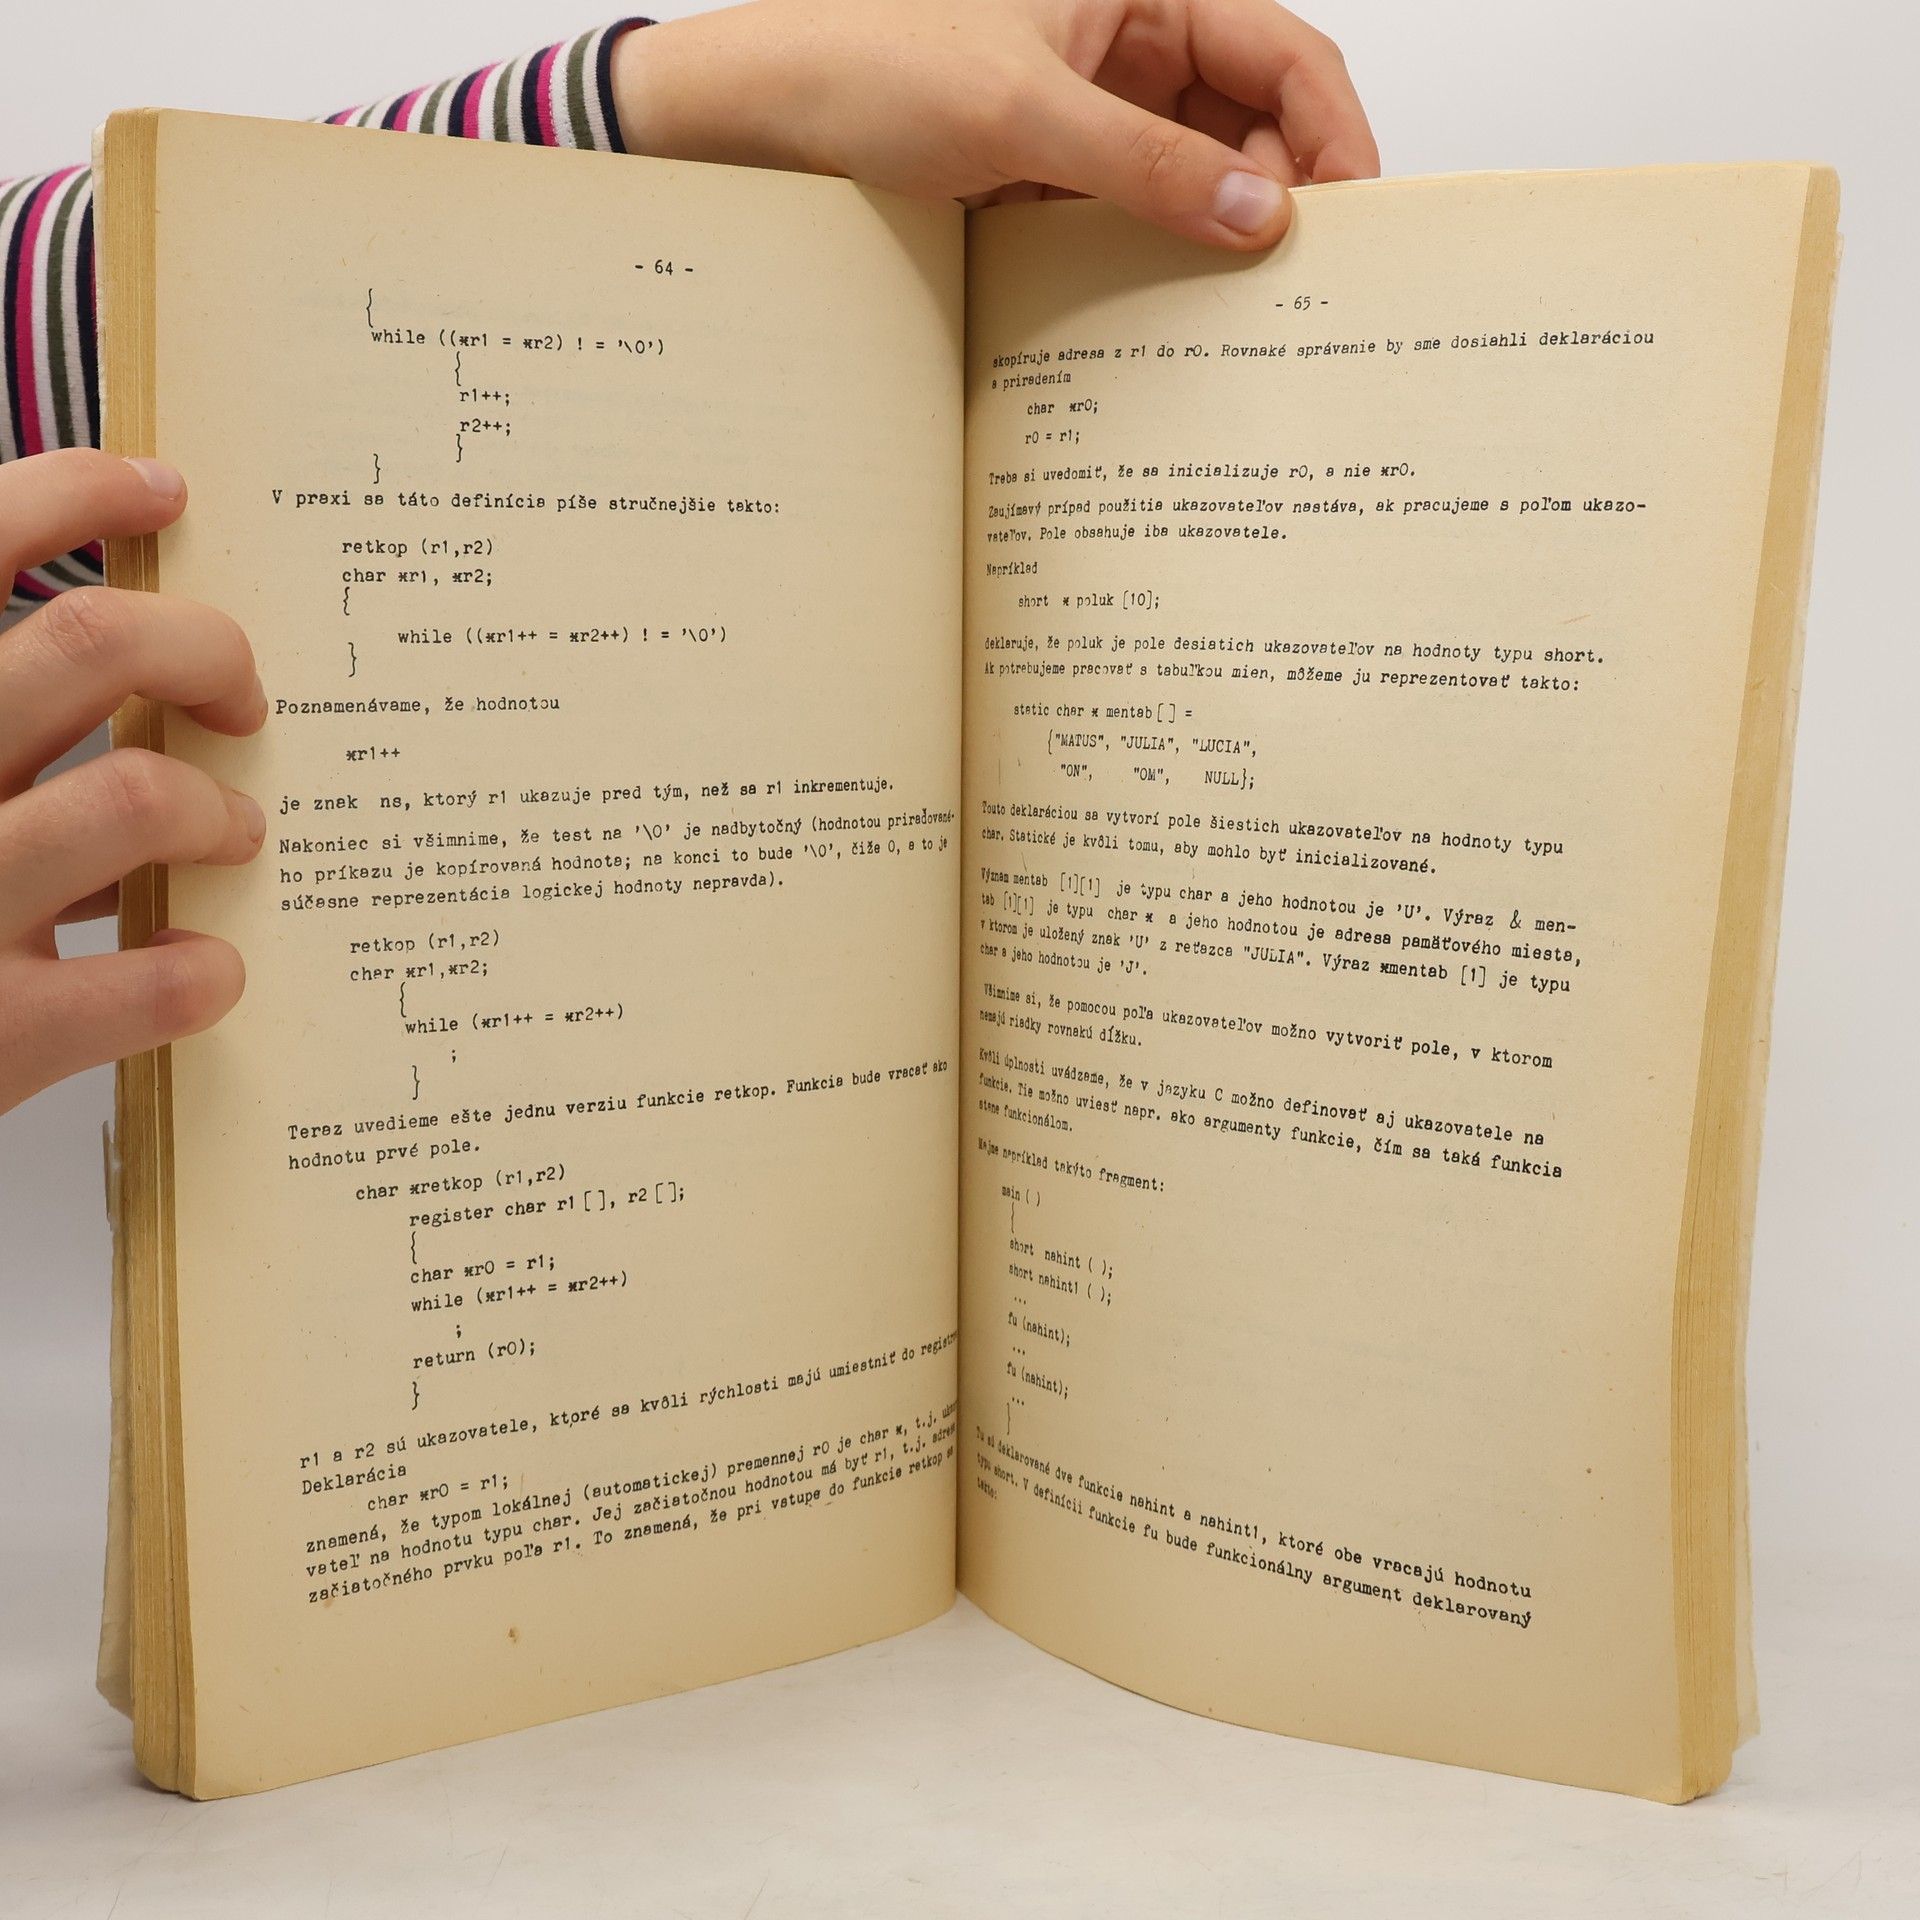 - 64 -
{
while ((*r1 = *r2) ! = '\0')
{
r1++;
r2++;
}
}
V praxi sa táto definícia píše stručnejšie takto:
retkop (r1,r2)
char *r1, *r2;
{
while ((*r1++ = *r2++) ! = '\0')
}
Poznamenávame, že hodnotou
*r1++
je znak ns, ktorý r1 ukazuje pred tým, než sa r1 inkrementuje.
Nakoniec si všimnime, že test na '\0' je nadbytočný (hodnotou priraďované-
ho príkazu je kopírovaná hodnota; na konci to bude '\0', čiže 0, a to je
súčasne reprezentácia logickej hodnoty nepravda).
retkop (r1,r2)
char *r1,*r2;
{
while (*r1++ = *r2++)
;
}
Teraz uvedieme ešte jednu verziu funkcie retkop. Funkcia bude vracať ako
hodnotu prvé pole.
char *retkop (r1,r2)
register char r1 [], r2 [];
{
char *r0 = r1;
while (*r1++ = *r2++)
;
return (r0);
}
r1 a r2 sú ukazovatele, ktoré sa kvôli rýchlosti majú umiestniť do
Deklarácia
char *r0 = r1;
znamená, že typom lokálnej (automatickej) premennej r0 je char *, t.j.
vateľ na hodnotu typu char. Jej začiatočnou hodnotou má byť r1, t.j.
začiatočného prvku poľa r1. To znamená, že pri vstupe do funkcie retkop sa
- 65 -
skopíruje adresa z r1 do r0. Rovnaké správanie by sme dosiahli deklaráciou
a priradením
char *r0;
r0 = r1;
Treba si uvedomiť, že sa inicializuje r0, a nie *r0.
Zaujímavý prípad použitia ukazovateľov nastáva, ak pracujeme s poľom ukazo-
vateľov. Pole obsahuje iba ukazovatele.
Napríklad
short * poluk [10];
deklaruje, že poluk je pole desiatich ukazovateľov na hodnoty typu short.
Ak potrebujeme pracovať s tabuľkou mien, môžeme ju reprezentovať takto:
static char * mentab [] =
{"MATUS", "JULIA", "LUCIA",
"ON", "OM", NULL};
Touto deklaráciou sa vytvorí pole šiestich ukazovateľov na hodnoty typu
char. Statické je kvôli tomu, aby mohlo byť inicializované.
Význam mentab [1][1] je typu char a jeho hodnotou je 'U'. Výraz & men-
tab [1][1] je typu char * a jeho hodnotou je adresa pamäťového miesta,
v ktorom je uložený znak 'U' z reťazca "JULIA". Výraz *mentab [1] je typu
char a jeho hodnotou je 'J'.
Všimnime si, že pomocou poľa ukazovateľov možno vytvoriť pole, v ktorom
nemajú riadky rovnakú dĺžku.
Kvôli úplnosti uvádzame, že v jazyku C možno definovať aj ukazovatele na
funkcie. Tie možno uviesť napr. ako argumenty funkcie, čím sa taká funkcia
stane funkcionálom.
Majme napríklad takýto fragment:
main ( )
{
short nahint ( );
short nahint1 ( );
...
fu (nahint);
...
fu (nahint);
...
}
Tu sú deklarované dve funkcie nahint a nahint1, ktoré obe vracajú hodnotu
typu short. V definícii funkcie fu bude funkcionálny argument deklarovaný
takto: